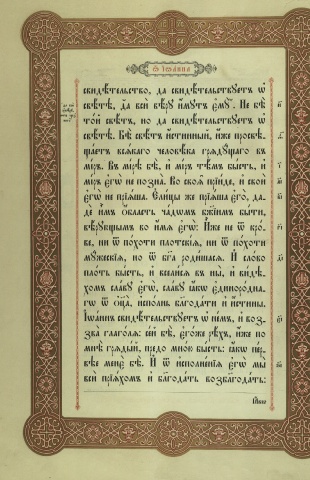 Ѿ Іѡанна
свидѣтельство, да свидѣтельствꙋетъ ѡ҆
свѣтѣ, да всѝ вѣрꙋ и҆мꙋтъ є҆мꙋ̀. Не бѣ̀
то́й свѣтъ, но да свидѣтельствꙋетъ ѡ҆
свѣтѣ. Бѣ̀ свѣтъ и҆стинный, и҆́же просвѣ-
ща́етъ всѧ́каго человѣ́ка грѧдꙋ́щаго въ
мі́ръ. Въ мі́рѣ бѣ̀, и҆ мі́ръ тѣ́мъ бы́сть, и҆
мі́ръ є҆гѡ̀ не позна̀. Во своѧ̑ прїи́де, и҆ своѝ
є҆гѡ̀ не прїѧ́ша. Є҆ли́цы же прїѧ́ша є҆го̀, да-
дѐ и҆̀мъ ѻ҆́бласть ча́дѡмъ бж҃їимъ бы́ти,
вѣ́рꙋющымъ во и҆́мѧ є҆гѡ̀: И҆̀же не ѿ кро́-
ве, ни ѿ по́хоти плотскі́ѧ, ни ѿ по́хоти
мꙋ́жескїѧ, но ѿ бг҃а роди́шасѧ. И҆ сло́во
пло́ть бы́сть, и҆ всели́сѧ въ ны̀, и҆ ви́дѣ-
хомъ сла́вꙋ є҆гѡ̀, сла́вꙋ ꙗ҆́кѡ є҆диноро́дна-
гѡ ѿ ѻ҆ц҃а̀, и҆спо́лнь благода́ти и҆ и҆́стины.
І҆ѡа́ннъ свидѣ́тельствꙋетъ ѡ҆ не́мъ, и҆ воз-
зва̀ глаго́лѧ: се́й бѣ̀, є҆го́же рѣ́хъ, и҆́же по
мнѣ̀ грѧды́й, предо мно́ю бы́сть: ꙗ҆́кѡ пе́р-
вѣе менє̀ бѣ̀. И҆ ѿ и҆сполне́нїѧ є҆гѡ̀ мы̀
всѝ прїѧ́хомъ и҆ благода́ть возблагода́ть: